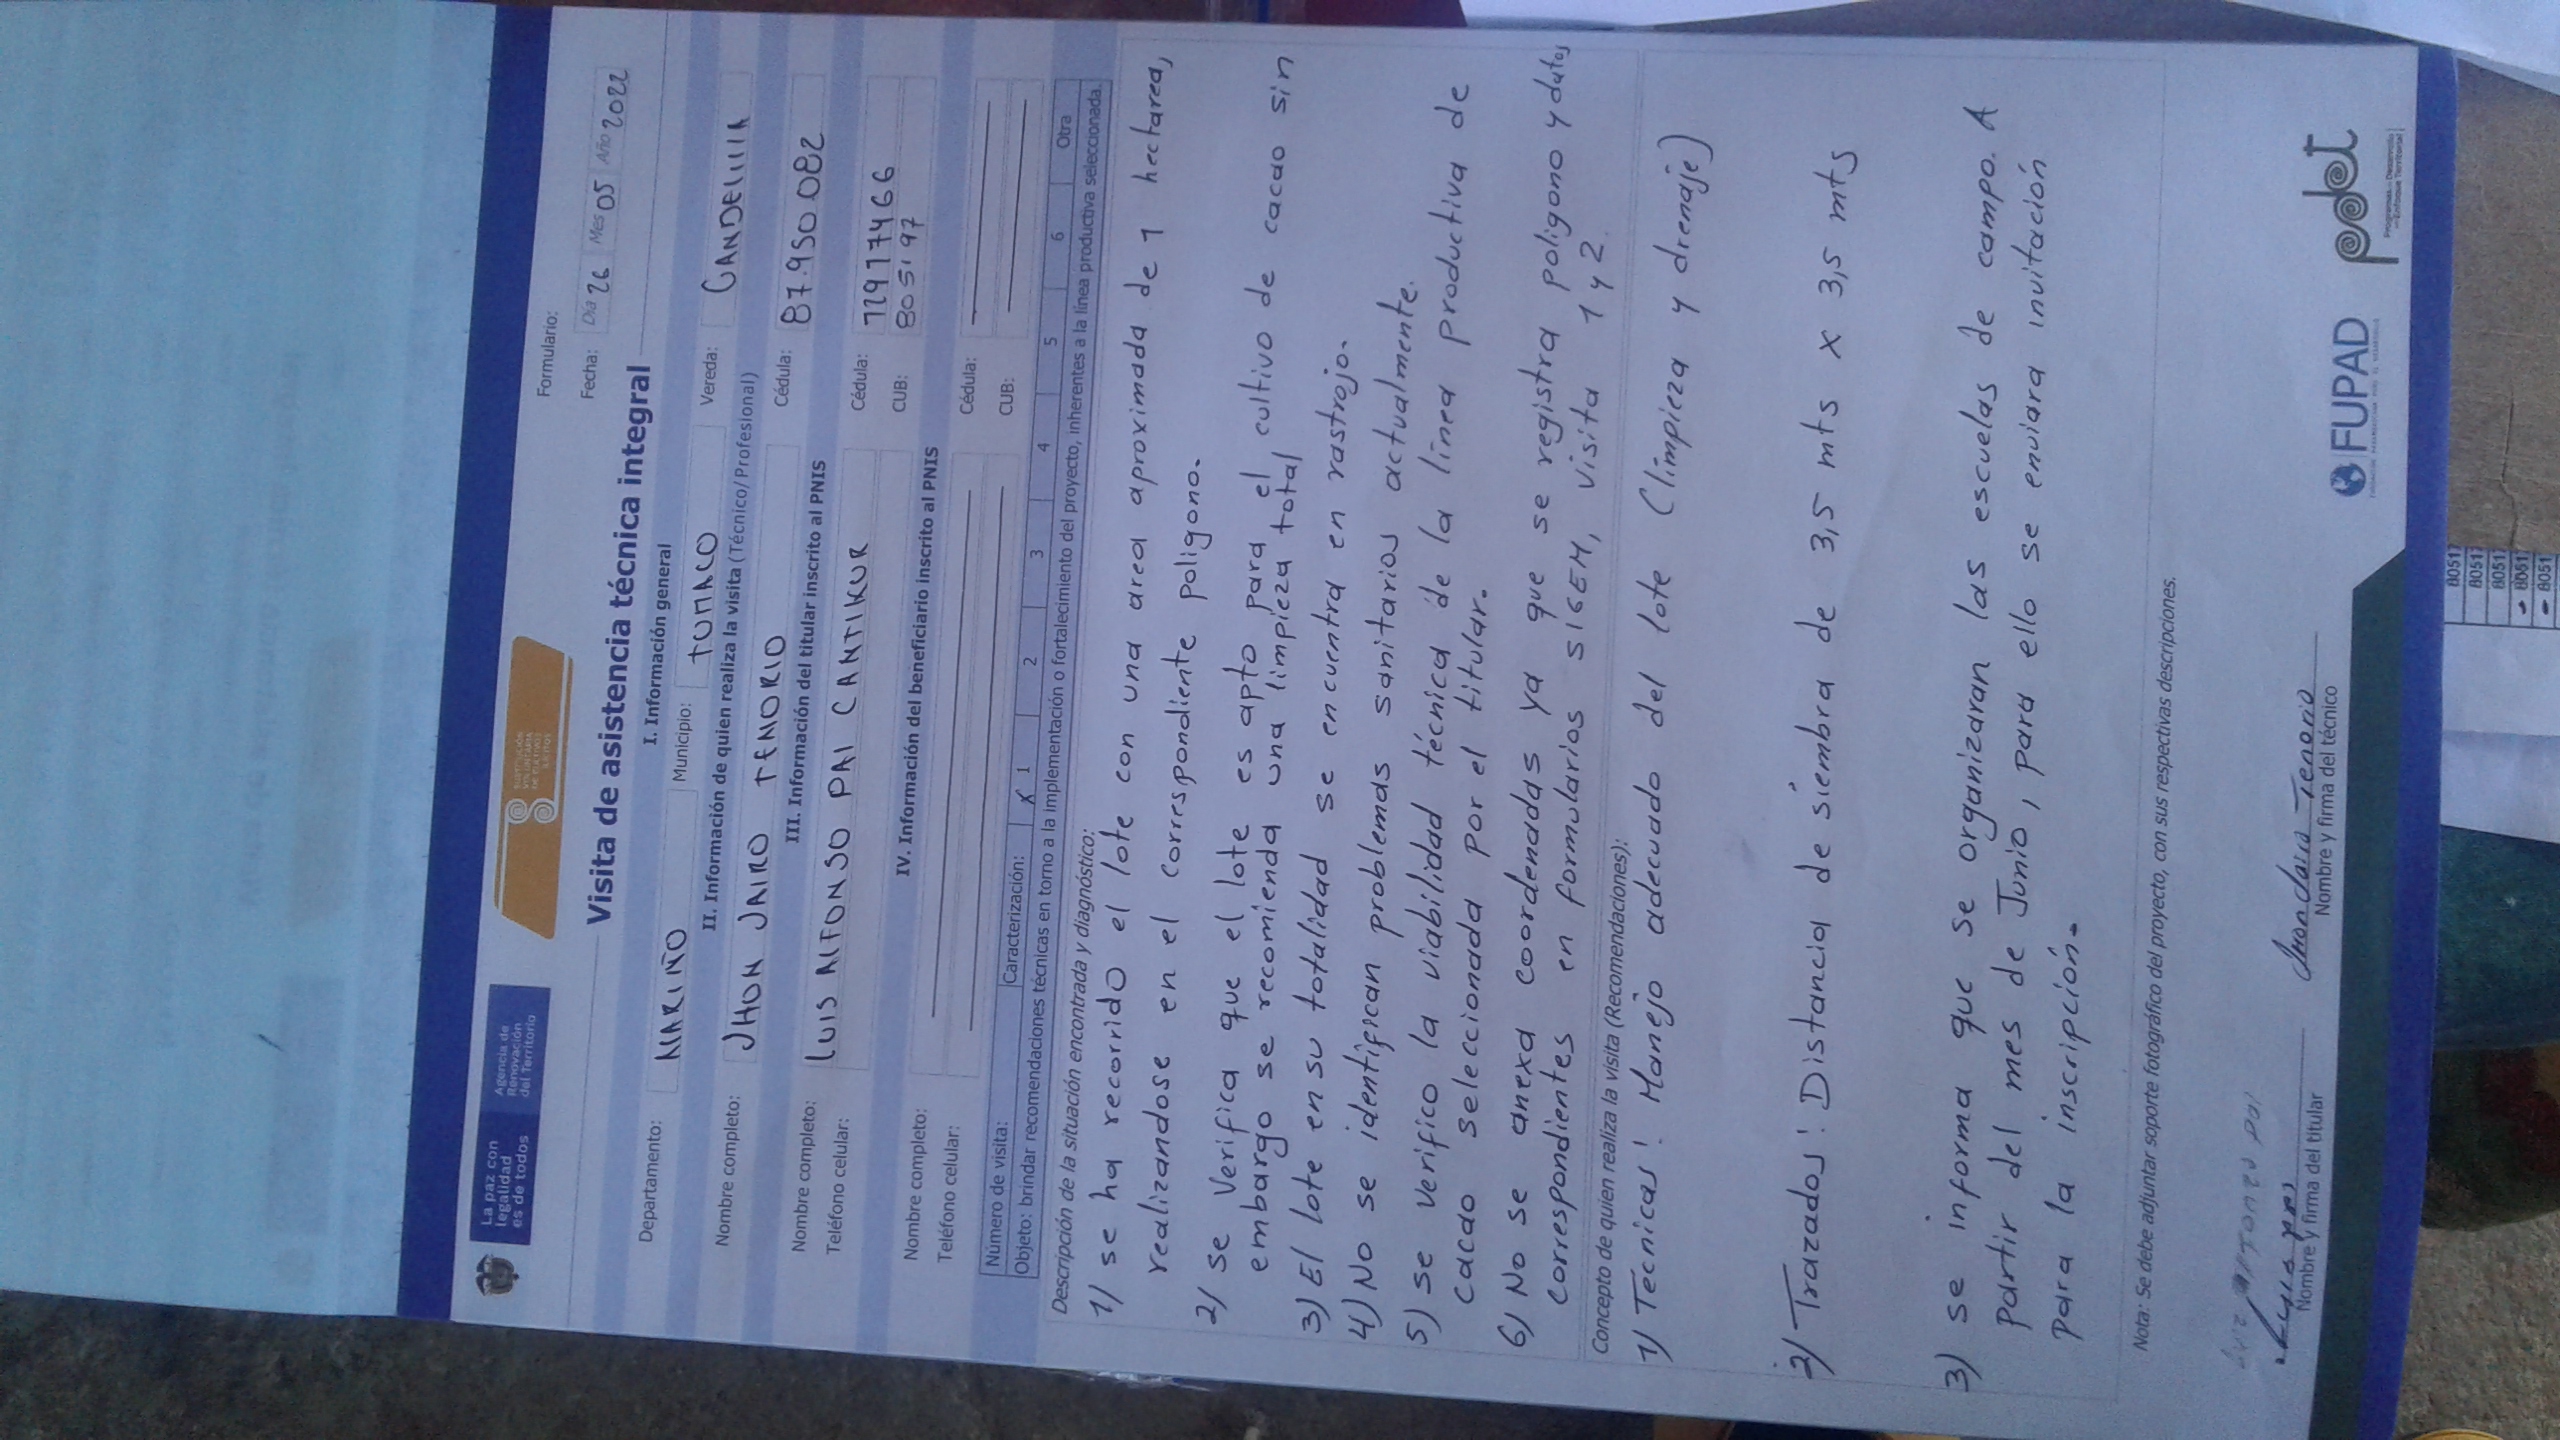 La paz con
legalidad
es de todos
Agencia de
Renovación
del Territorio
SUSTITUCIÓN
VOLUNTARIA
DE CULTIVOS
ILÍCITOS
Formulario:
Fecha: Día 26 Mes 05 Año 2022
Visita de asistencia técnica integral
I. Información general
Departamento: NARIÑO Municipio: TUMACO Vereda: CANDELILLA
II. Información de quien realiza la visita (Técnico/Profesional)
Nombre completo: JHON JAIRO TENORIO Cédula: 87.950.082
III. Información del titular inscrito al PNIS
Nombre completo: LUIS ALFONSO PAI CANTIKUR Cédula: 72917466
Teléfono celular: CUB: 805197
IV. Información del beneficiario inscrito al PNIS
Nombre completo: Cédula:
Teléfono celular: CUB:
Número de visita: Caracterización: X 1 2 3 4 5 6 Otra
Objeto: brindar recomendaciones técnicas en torno a la implementación o fortalecimiento del proyecto, inherentes a la línea productiva seleccionada.
Descripción de la situación encontrada y diagnóstico:
1) se ha recorrido el lote con una area aproximada de 1 hectarea,
realizandose en el correspondiente poligono.
2) se verifica que el lote es apto para el cultivo de cacao sin
embargo se recomienda una limpieza total
3) El lote en su totalidad se encuentra en rastrojo.
4) No se identifican problemas sanitarios actualmente.
5) se verifico la viabilidad técnica de la linea productiva de
cacao seleccionada por el titular.
6) No se anexa coordenadas ya que se registra poligono y datos
correspondientes en formularios SIGEM, visita 1 y 2.
Concepto de quien realiza la visita (Recomendaciones):
1) Técnicas: Manejo adecuado del lote (limpieza y drenaje)
2) Trazados: Distancia de siembra de 3,5 mts x 3,5 mts
3) se informa que se organizaran las escuelas de campo. A
partir del mes de Junio, para ello se enviara invitación
para la inscripción.
Nota: Se debe adjuntar soporte fotográfico del proyecto, con sus respectivas descripciones.
Nombre y firma del titular
Tenorio
Nombre y firma del técnico
FUPAD
pdet
Programas de Desarrollo
con Enfoque Territorial
8051
8051
8051
8051
8051